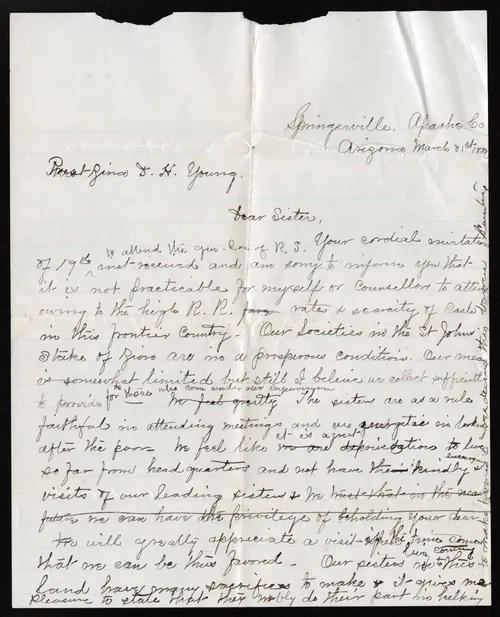 Springerville. Apache Co
Arizona March 31st
Prest Zina D. H. Young.
Dear Sister,
to attend the gen. Con of R. S.
of 19th inst received and am sorry to inform you that Your cordial invitation
it is not practicable for myself or Counsellors to attend
owing to the high R. R. fare rates & scarcity of Cash
in this frontier Country. Our Societies in the St Johns
Stake of Zion are in a prosperous condition. Our means
is somewhat limited but still I believe we collect sufficient
to provide for those who come under our
We feel greatly The sisters are as a rule
faithful in attending meetings and are energetic in looking
after the poor We feel like it is a great deprivation to live
so far from head quarters and not have the kindly
visits of our leading sisters & We trust that in the near
future we can have the privilege of beholding your dear
We will greatly appreciate a visit if the time comes
that we can be thus favored. Our sisters in this
land have many sacrifices to make & it gives me
pleasure to state that they nobly do their part in helping